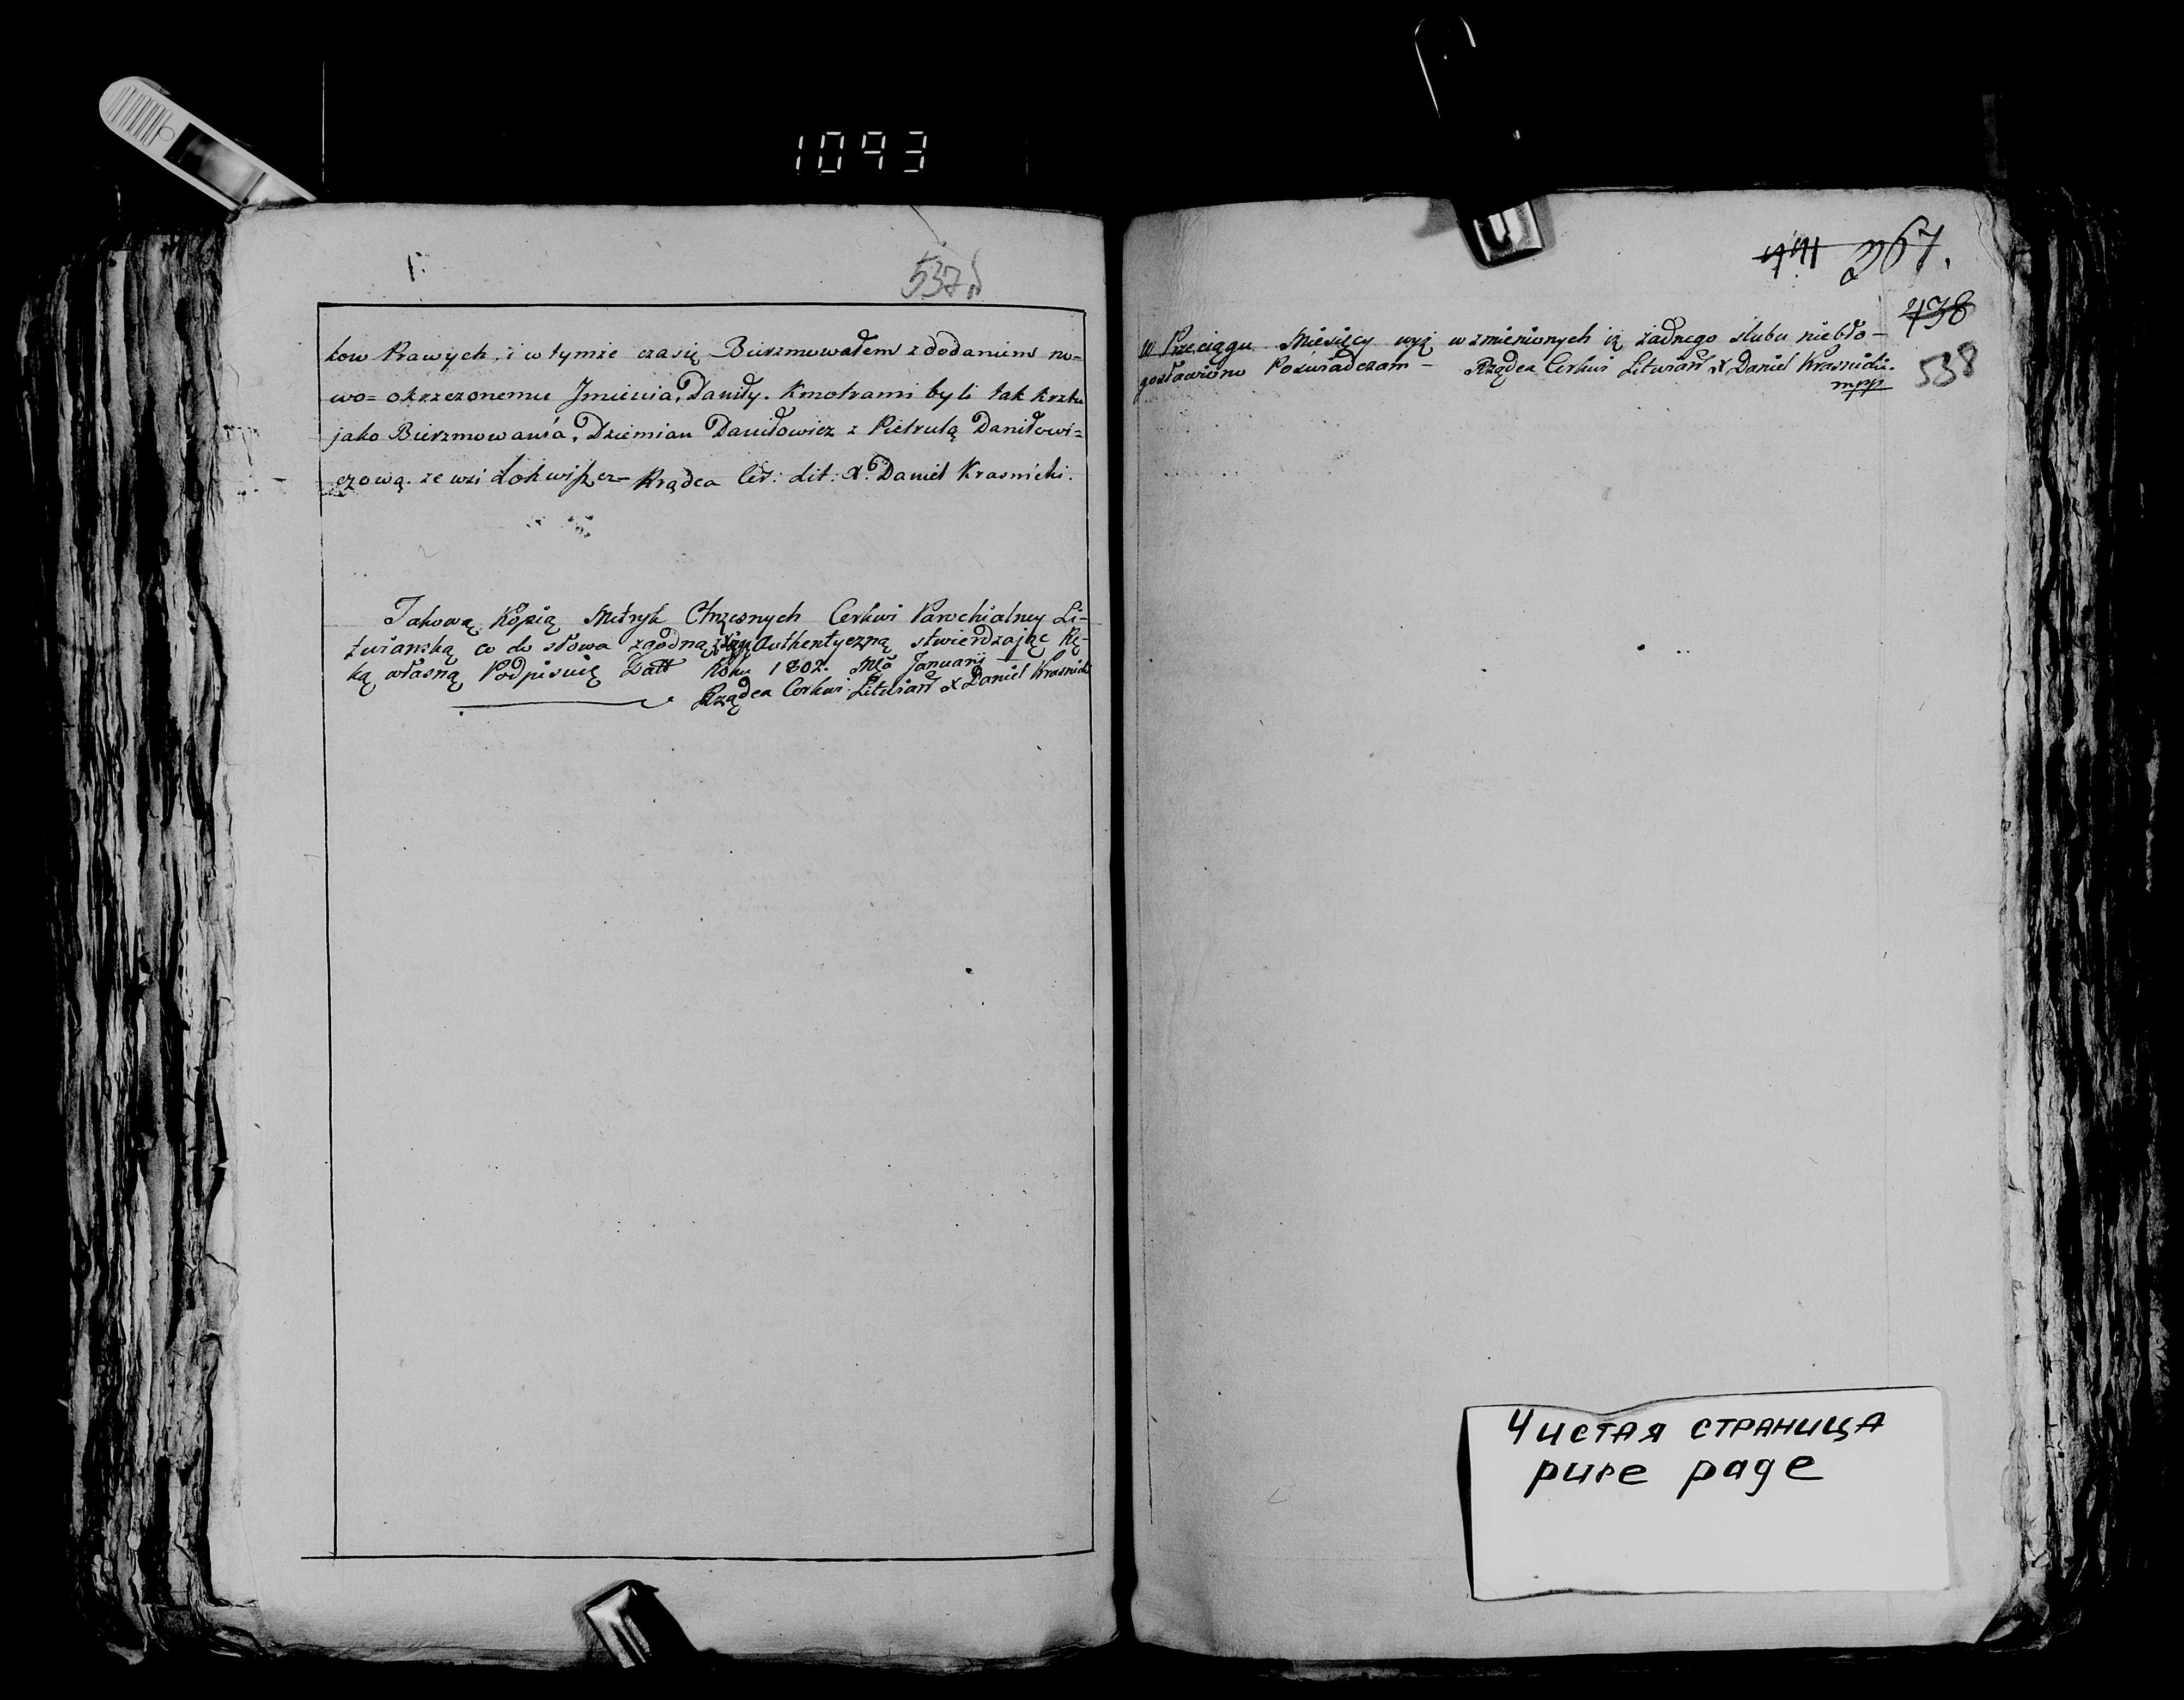 1093
537
kow Prawych, i w tymże czasię Bierzmowałem z dodaniem no=
wo=okrzczonemu Jmienia, Daniły. Kmotrami byli tak krztu
jako Bierzmowania, Dziemian Daniłowicz z Pietrulą Daniłowi=
czową ze wsi Rządca Cer: Lit: X. Daniel Krasnicki.
Takową Kopią Metryk Chrzesnych Cerkwi Parochialney Li-
twianską co do słowa zgodną Authentyczną stwierdzając Rę-
ką własną Podpisuię Datt Roku 1802. Mca Januarij
Rządca Cerkwi Litwian X Daniel Krasnicki
267.
438
538
w Przeciągu Miesięcy wyż wzmienionych iż żadnego slubu niebło-
gosławiono Poświadczam - Rządca Cerkwi Litwian X Daniel Krasnicki.
mpp
Чистая страница
pure page